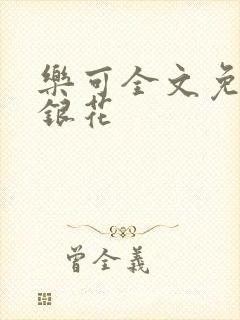 樂可全文免
銀花
曾全義